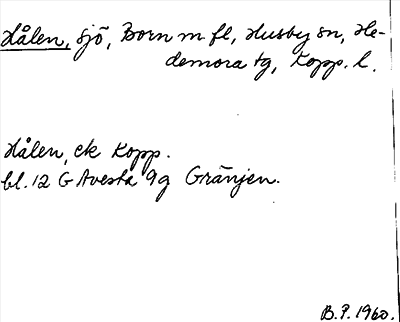 Hålen, sjö, Born m fl, Husby sn, He-
demora tg, Kopp. l.
Hålen, ek Kopp.
bl. 12 G Avesta 9g Gränjen.
B.P. 1960.